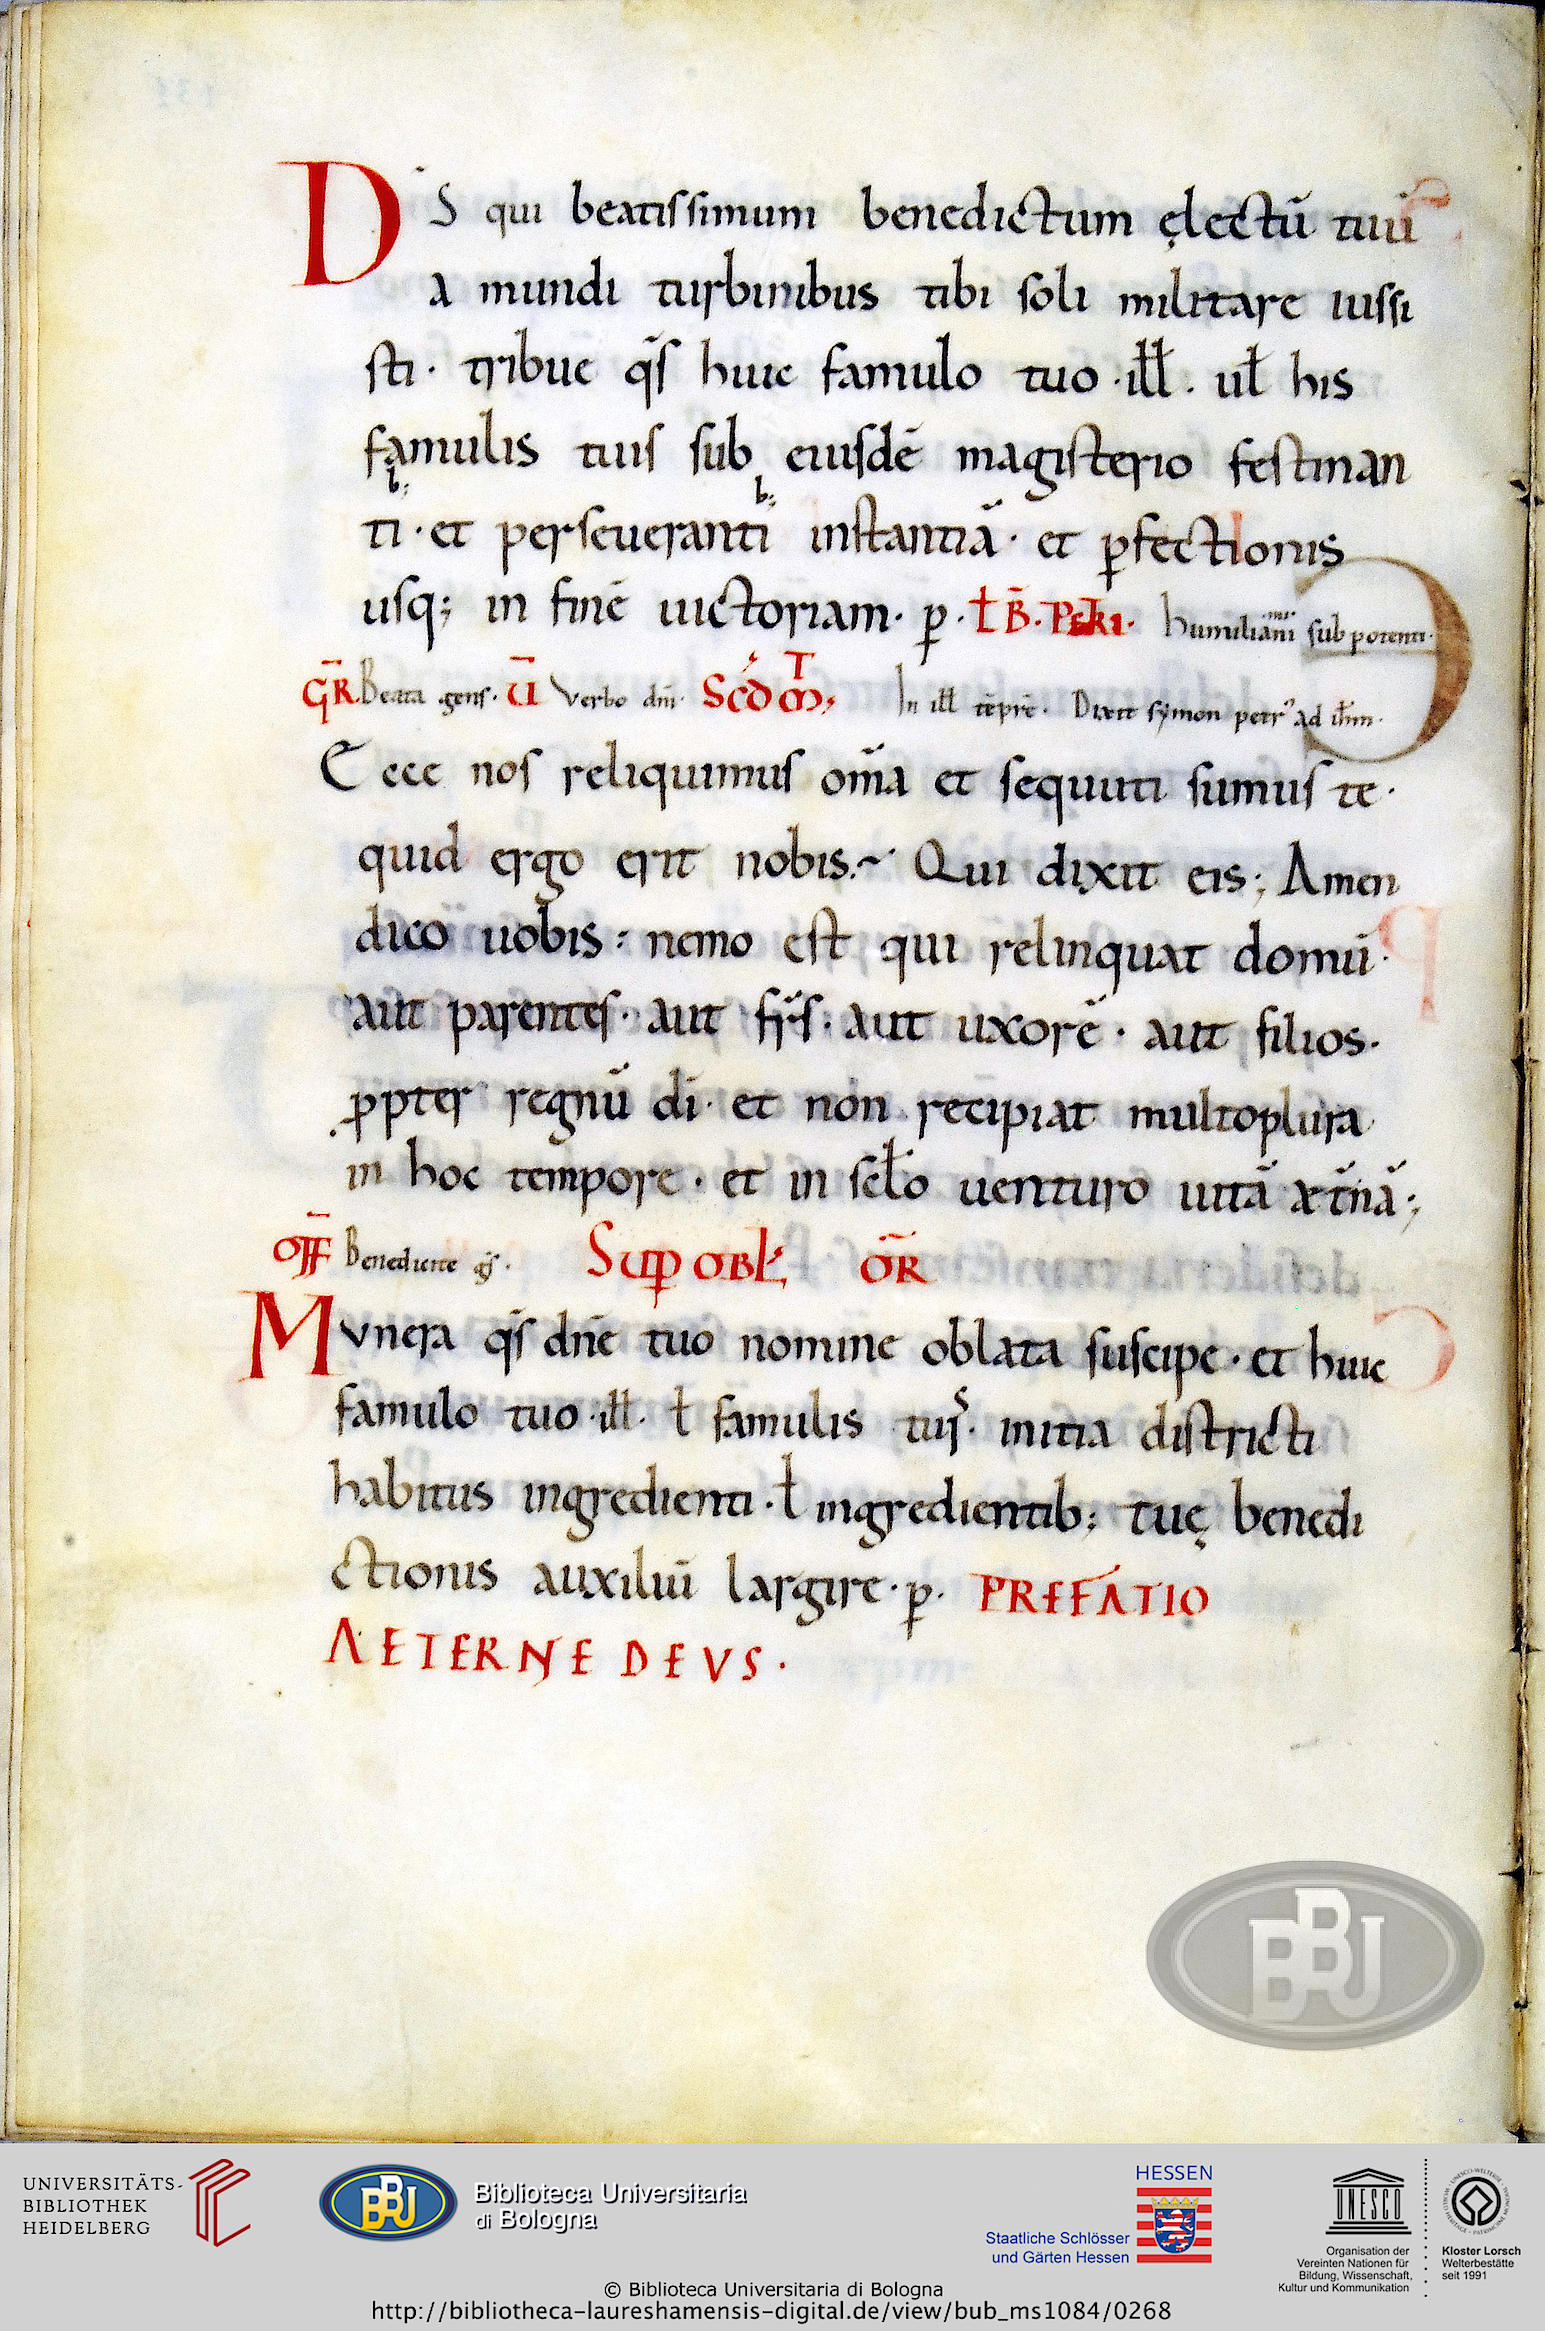 D̄S qui beatissimum benedictum ęlectū tuū
a mundi turbinibus tibi soli militare iussi
sti · tribue q̄s huic famulo tuo · ill̄ · ul̄ his
famulis tuis sub eiusdē magisterio festinan
ti b; · et perseueranti b; instantiā · et ꝑfectionis
usq; in finē uictoriam · ꝑ · ł B̄ · PETRI · humiliamini sub potenti ·
GR̄ Beata gens · V̄ Verbo dn̄i · SCD̄M T In ill̄ tēpr̄e · Dixit symon petr᾽ ad ih̄m ·
Ecce nos reliquimus om̄a et sequuti sumus te ·
quid ergo erit nobis? Qui dixit eis; Amen
dico uobis: nemo est qui relinquat domū ·
aut parentes · aut fr̄s · aut uxorē · aut filios ·
ꝓpter regnū dī · et non recipiat multoplura
in hoc tempore · et in scl̄o uenturo uitā æt̄nā;
OFF̄ Benedicite gš · Suꝑ OBL̄ OR̄
Munera q̄s dn̄e tuo nomine oblata suscipe · et huic
famulo tuo · ill̄ · ł famulis tuis · initia districti
habitus ingredienti · ł ingredientib; tuę benedi
ctionis auxiliū largire · ꝑ · PREFATIO
AETERNE DEVS ·
BBU
UNIVERSITÄTS-
BIBLIOTHEK
HEIDELBERG
BBU
Biblioteca Universitaria
di Bologna
HESSEN
Staatliche Schlösser
und Gärten Hessen
UNESCO
Organisation der
Vereinten Nationen für
Bildung, Wissenschaft,
Kultur und Kommunikation
Kloster Lorsch
Welterbestätte
seit 1991
© Biblioteca Universitaria di Bologna
http://bibliotheca-laureshamensis-digital.de/view/bub_ms1084/0268